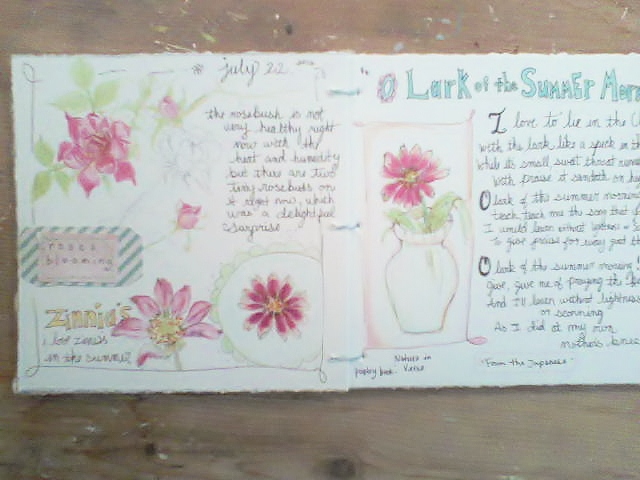 july 22
the rosebush is not
very healthy right
now with the
heat and humidity
but there are two
tiny rosebuds on
it right now, which
was a delightful
surprise...
roses
blooming
Zinnia's
i love zinnia's
in the summer
O Lark of the Summer Morn
I love to lie in the
with the lark like a speck in the
While its small sweet throat
With praise it sendeth on
O lark of the summer morning
teach, teach me the song that
I would learn without lightness or
To give praise for every good
O lark of the summer morning
give, give me of praying the
And I'll learn without lightness
or scorning
As I did at my own
mothers knee
"From the Japanese"
Nature in
Verse
poetry book